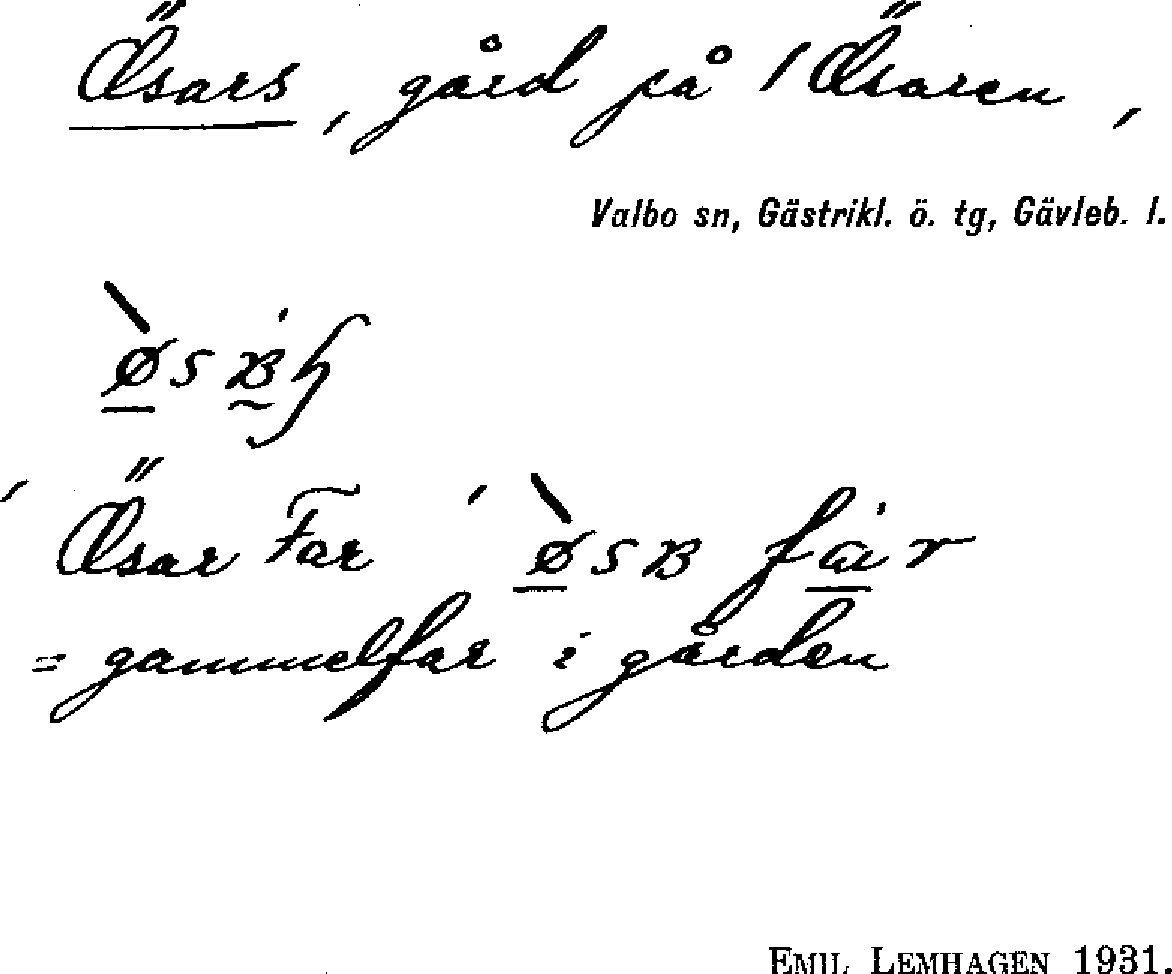 Ösars, gård på / Ösaren,
Valbo sn, Gästrikl. ö. tg, Gävleb. l.
Ösar Far
= gammelfar i gården
EMIL LEMHAGEN 1931.